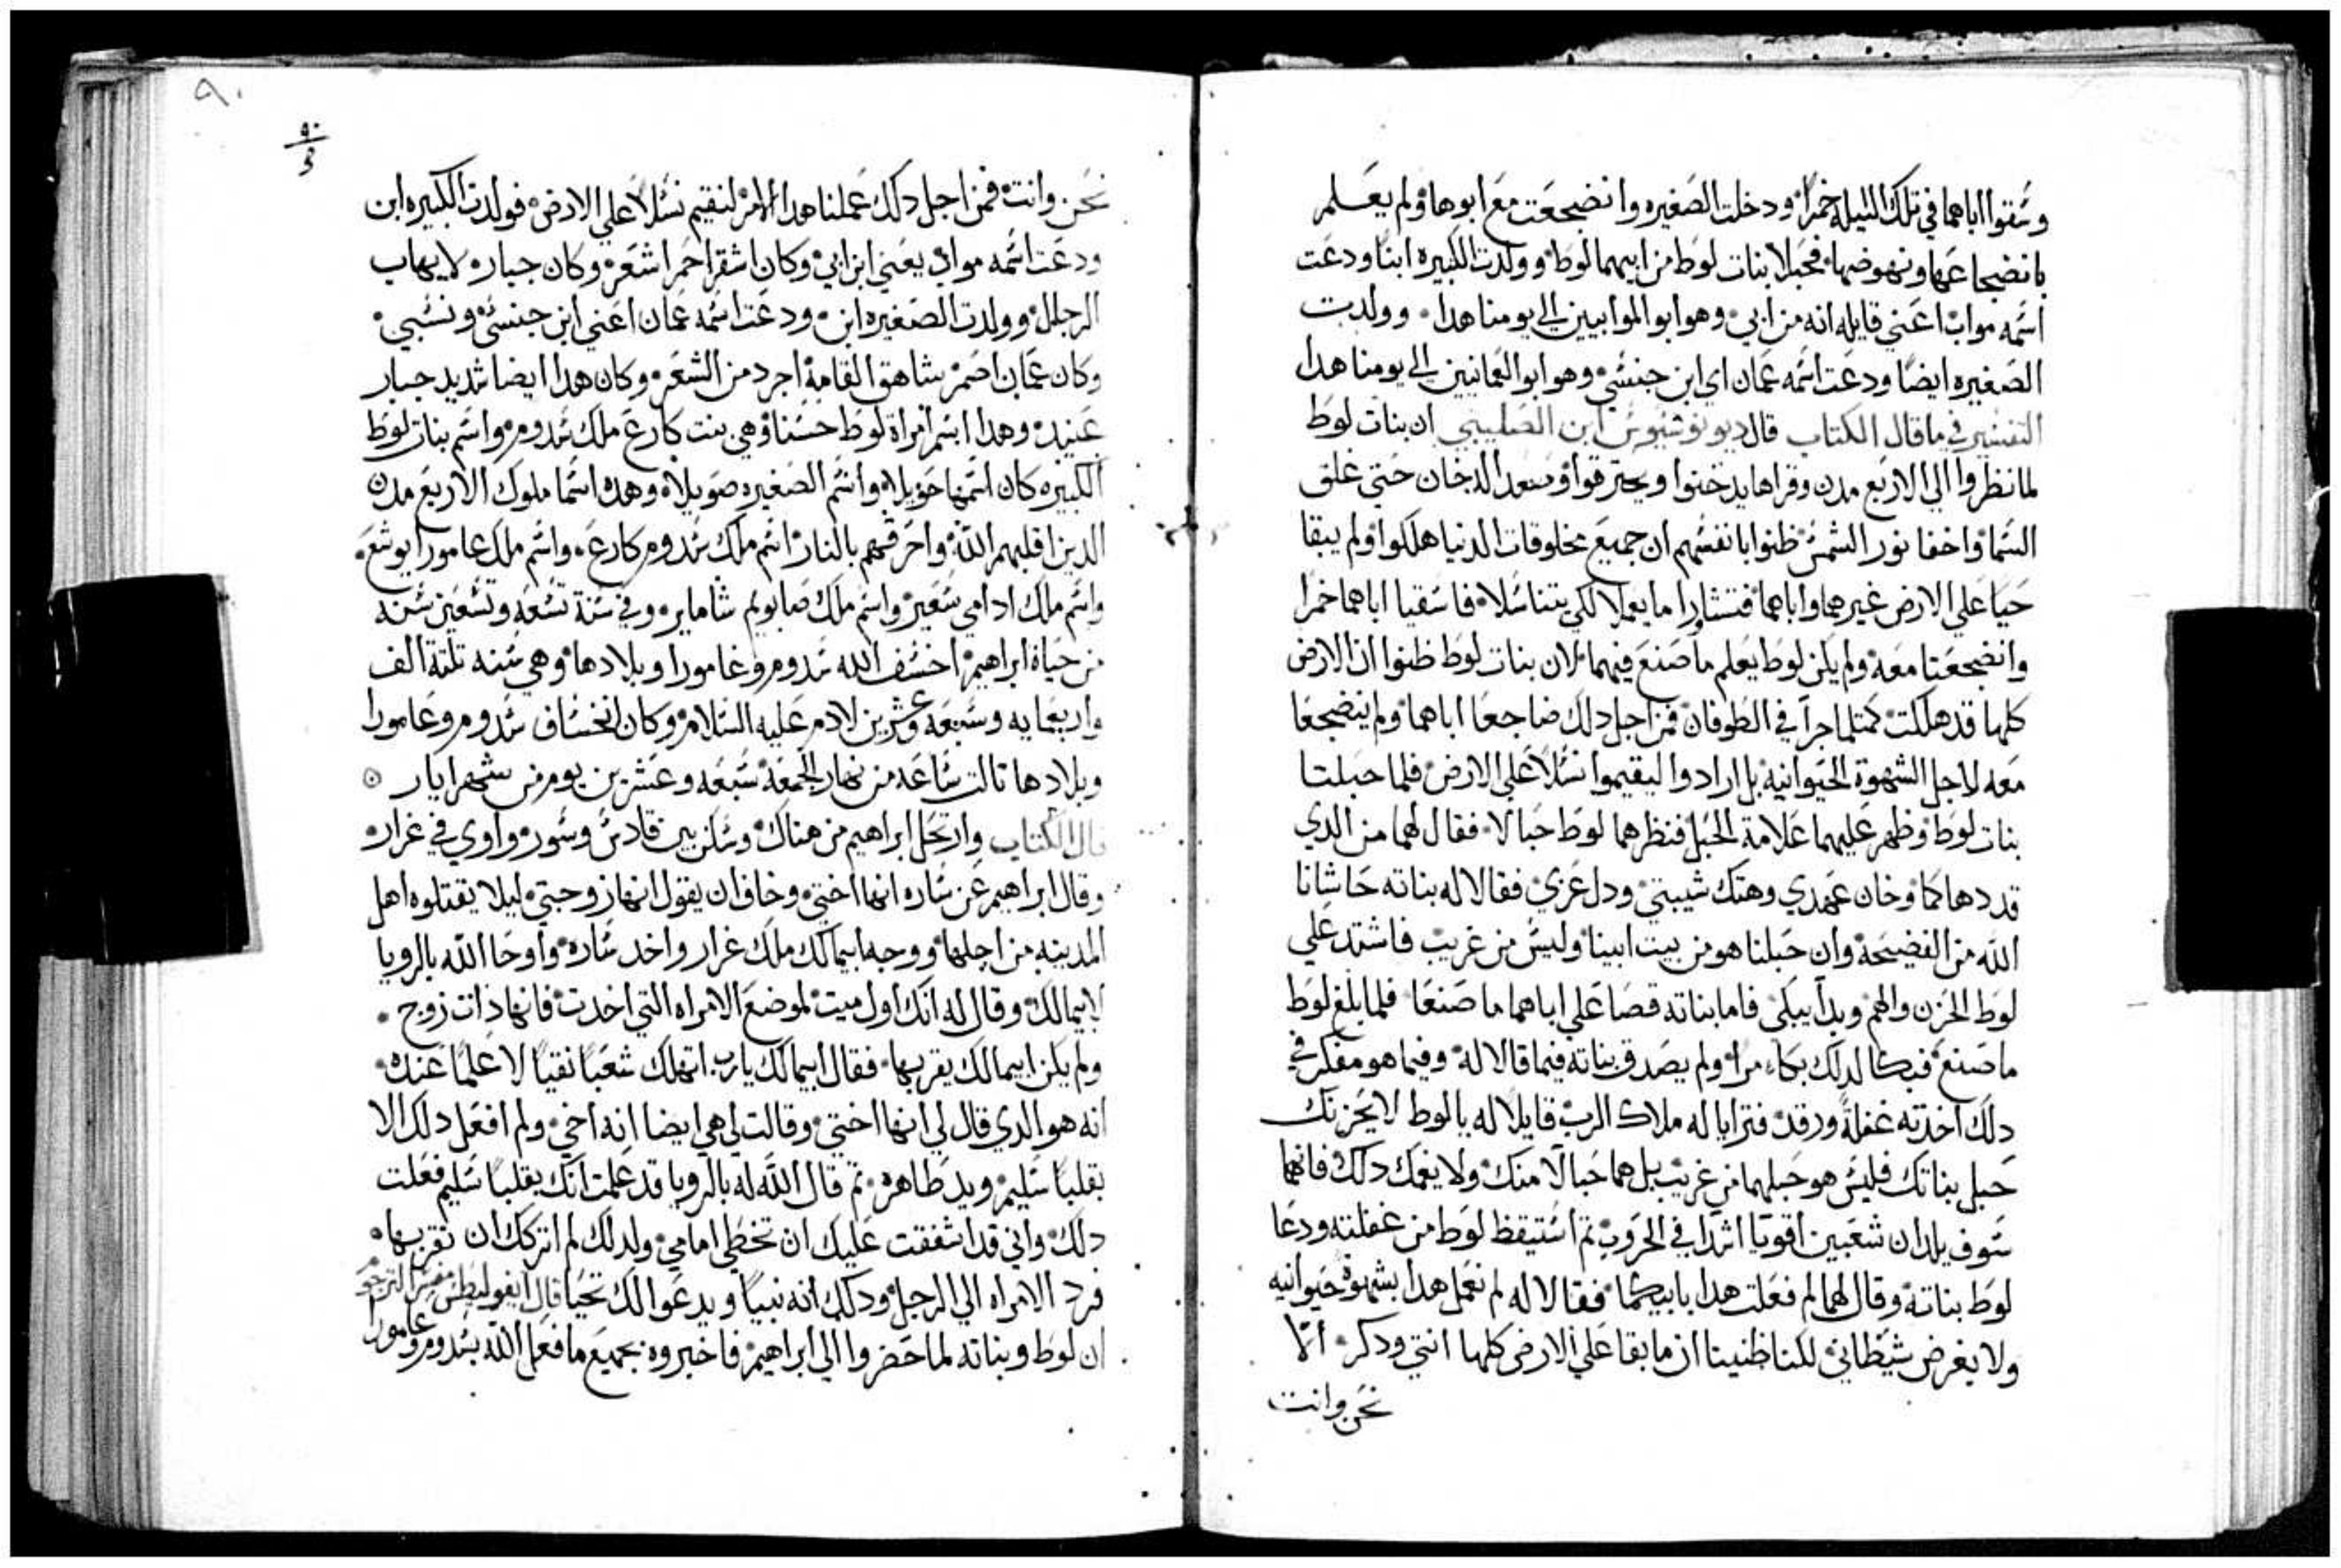 وسقوا اباهما في تلك الليله خمرا ودخلت الصغيره وانضجعت مع ابوها ولم يعلم
بانضجاعها ونهوضها فحبلا بنات لوط من ابيهما لوط وولدت الكبيره ابنا ودعت
اسمه مواب اعني قايله انه من ابي وهو ابو الموابيين الي يومنا هدا وولدت
الصغيره ايضا ودعت اسمه عمان اي ابن جنسي وهو ابو العمانيين الي يومنا هدا
التفسير في ما قال الكتاب قال ديونوسيوس ابن الصليبي ان بنات لوط
لما نظروا الي الاربع مدن وقراها يدخنوا ويحترقوا وصعد الدخان حتي غلق
السما واخفا نور الشمس ظنوا بانفسهم ان جميع مخلوقات الدنيا هلكوا ولم يبقا
حيا علي الارض غيرهما واباهما فتشاورا ما يعملا لكي يتناسلا فاسقيا اباهما خمرا
وانضجعتا معه ولم يكن لوط يعلم ما صنع فيهما لان بنات لوط ظنوا ان الارض
كلها قد هلكت كمتلما جرا في الطوفان فمن اجل دلك ضاجعا اباهما ولم ينضجعا
معه لاجل الشهوة الحيوانيه بل ارادوا ليقيموا نسلا علي الارض فلما حبلتا
بنات لوط وظهر عليهما علامة الحبل فنظرهما لوط حبالا فقال لهما من الدي
قد دهاكما وخان عهدي وهتك شيبتي ودل عزي فقالا له بناته حاشانا
الله من الفضيحة وان حبلنا هو من بيت ابينا وليس من غريب فاشتد علي
لوط الحزن والهم وبدا يبكي فاما بناته قصا علي اباهما ما صنعا فلما بلغ لوط
ما صنع فبكا لدلك بكاء مرا ولم يصدق بناته فيما قالا له وفيما هو مفكر في
دلك اخدته غفلة ورقد فترايا له ملاك الرب قايلا له يا لوط لا يحزنك
حبل بناتك فليس هو حبلهما من غريب بل هما حبالا منك ولا يغمك دلك فانهما
سوف يلدان شعبين اقويا اشدا في الحروب تم استيقظ لوط من غفلته ودعا
لوط بناته وقال لهما لم فعلت هدا بابيكما فقالا له لم نعمل هدا بشهوة حيوانيه
ولا بغرض شيطاني لكنا ظنينا ان ما بقا علي الارض كلها انتي ودكر الا
نحن وانت
٩٠
نحن وانت فمن اجل دلك عملنا هدا الامر لنقيم نسلا علي الارض فولدت الكبيره ابن
ودعت اسمه مواب يعني ابن ابي وكان اشقر احمر اشعر وكان جبار لا يهاب
الرجال وولدت الصغيره ابن ودعت اسمه عمان اعني ابن جنسي ونسبي
وكان عمان اصمر شاهق القامة اجرد من الشعر وكان هدا ايضا شديد جبار
عنيد وهدا اسم امراة لوط حسنا وهي بنت كارع ملك سدوم واسم بنات لوط
الكبيره كان اسمها حويلا واسم الصغيره صويلا وهده اسما ملوك الاربع مدن
الدين اقلبهم الله واحرقهم بالنار اسم ملك سدوم كارع واسم ملك عامورا يوشع
واسم ملك ادامي سعير واسم ملك صابويم شاماير وفي سنة تسعه وتسعين سنه
من حياة ابراهيم اخسف الله سدوم وغامورا وبلادها وهي سنه تلتة الف
واربعمايه وسبعه وعشرين لادم عليه السلام وكان انخساف سدوم وعامورا
وبلادها تالت ساعه من نهار الجمعة سبعه وعشرين يوم من شهر ايار
قال الكتاب وارتحل ابراهيم من هناك وسكن بين قادس وسور واوي في غرار
وقال ابراهيم عن ساره انها اختي وخاف ان يقول انها زوجتي ليلا يقتلوه اهل
المدينه من اجلها ووجه ابيمالك ملك غرار واخد ساره واوحا الله بالرويا
لابيمالك وقال له انك اول ميت لموضع الامراه التي اخدت فانها ذات زوج
ولم يكن ابيمالك يقربها فقال ابيمالك يارب اتهلك شعبا نقيا لا علما عنده
انه هو الدي قال لي انها اختي وقالت لي هي ايضا انه اخي ولم افعل دلك الا
بقلبا سليم ويد طاهره تم قال الله له بالرويا قد علمت انك بقلبا سليم فعلت
دلك واني قد اشفقت عليك ان تخطي امامي ولدلك لم اتركك ان تقربها
فرد الامراه الي الرجل ودلك انه نبيا ويدعوا لك تحيا قال
ان لوط وبناته لما حضروا الي ابراهيم فاخبروه بجميع ما فعل الله بسدوم وعامورا